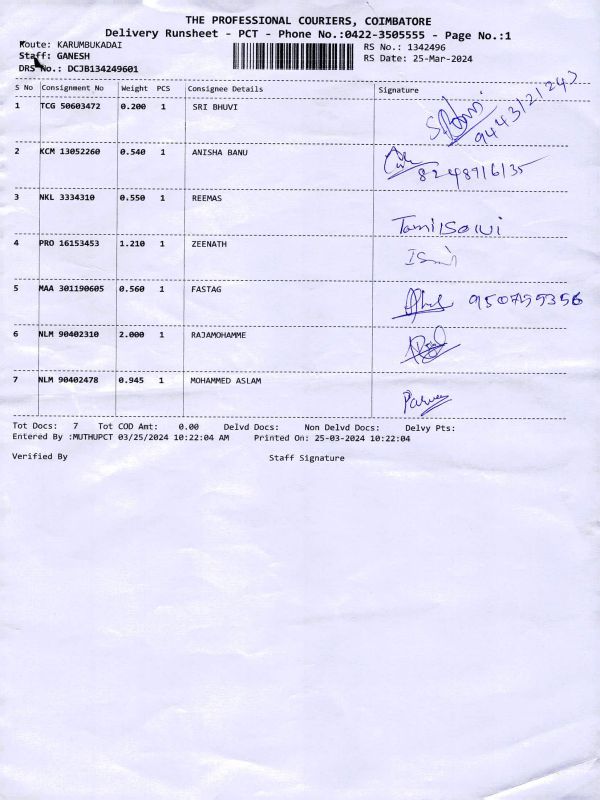 THE PROFESSIONAL COURIERS, COIMBATORE
Delivery Runsheet - PCT - Phone No.:0422-3505555 - Page No.:1
Route: KARUMBUKADAI
RS No.: 1342496
Staff: GANESH
RS Date: 25-Mar-2024
DRS No.: DCJB134249601
S No Consignment No Weight PCS Consignee Details Signature
1 TCG 50603472 0.200 1 SRI BHUVI 9443121243
2 KCM 13052260 0.540 1 ANISHA BANU
3 NKL 3334310 0.550 1 REEMAS Tamilselvi
4 PRO 16153453 1.210 1 ZEENATH
5 MAA 301190605 0.560 1 FASTAG
6 NLM 90402310 2.000 1 RAJAMOHAMME
7 NLM 90402478 0.945 1 MOHAMMED ASLAM
Tot Docs: 7 Tot COD Amt: 0.00 Delvd Docs: Non Delvd Docs: Delvy Pts:
Entered By :MUTHUPCT 03/25/2024 10:22:04 AM Printed On: 25-03-2024 10:22:04
Verified By Staff Signature